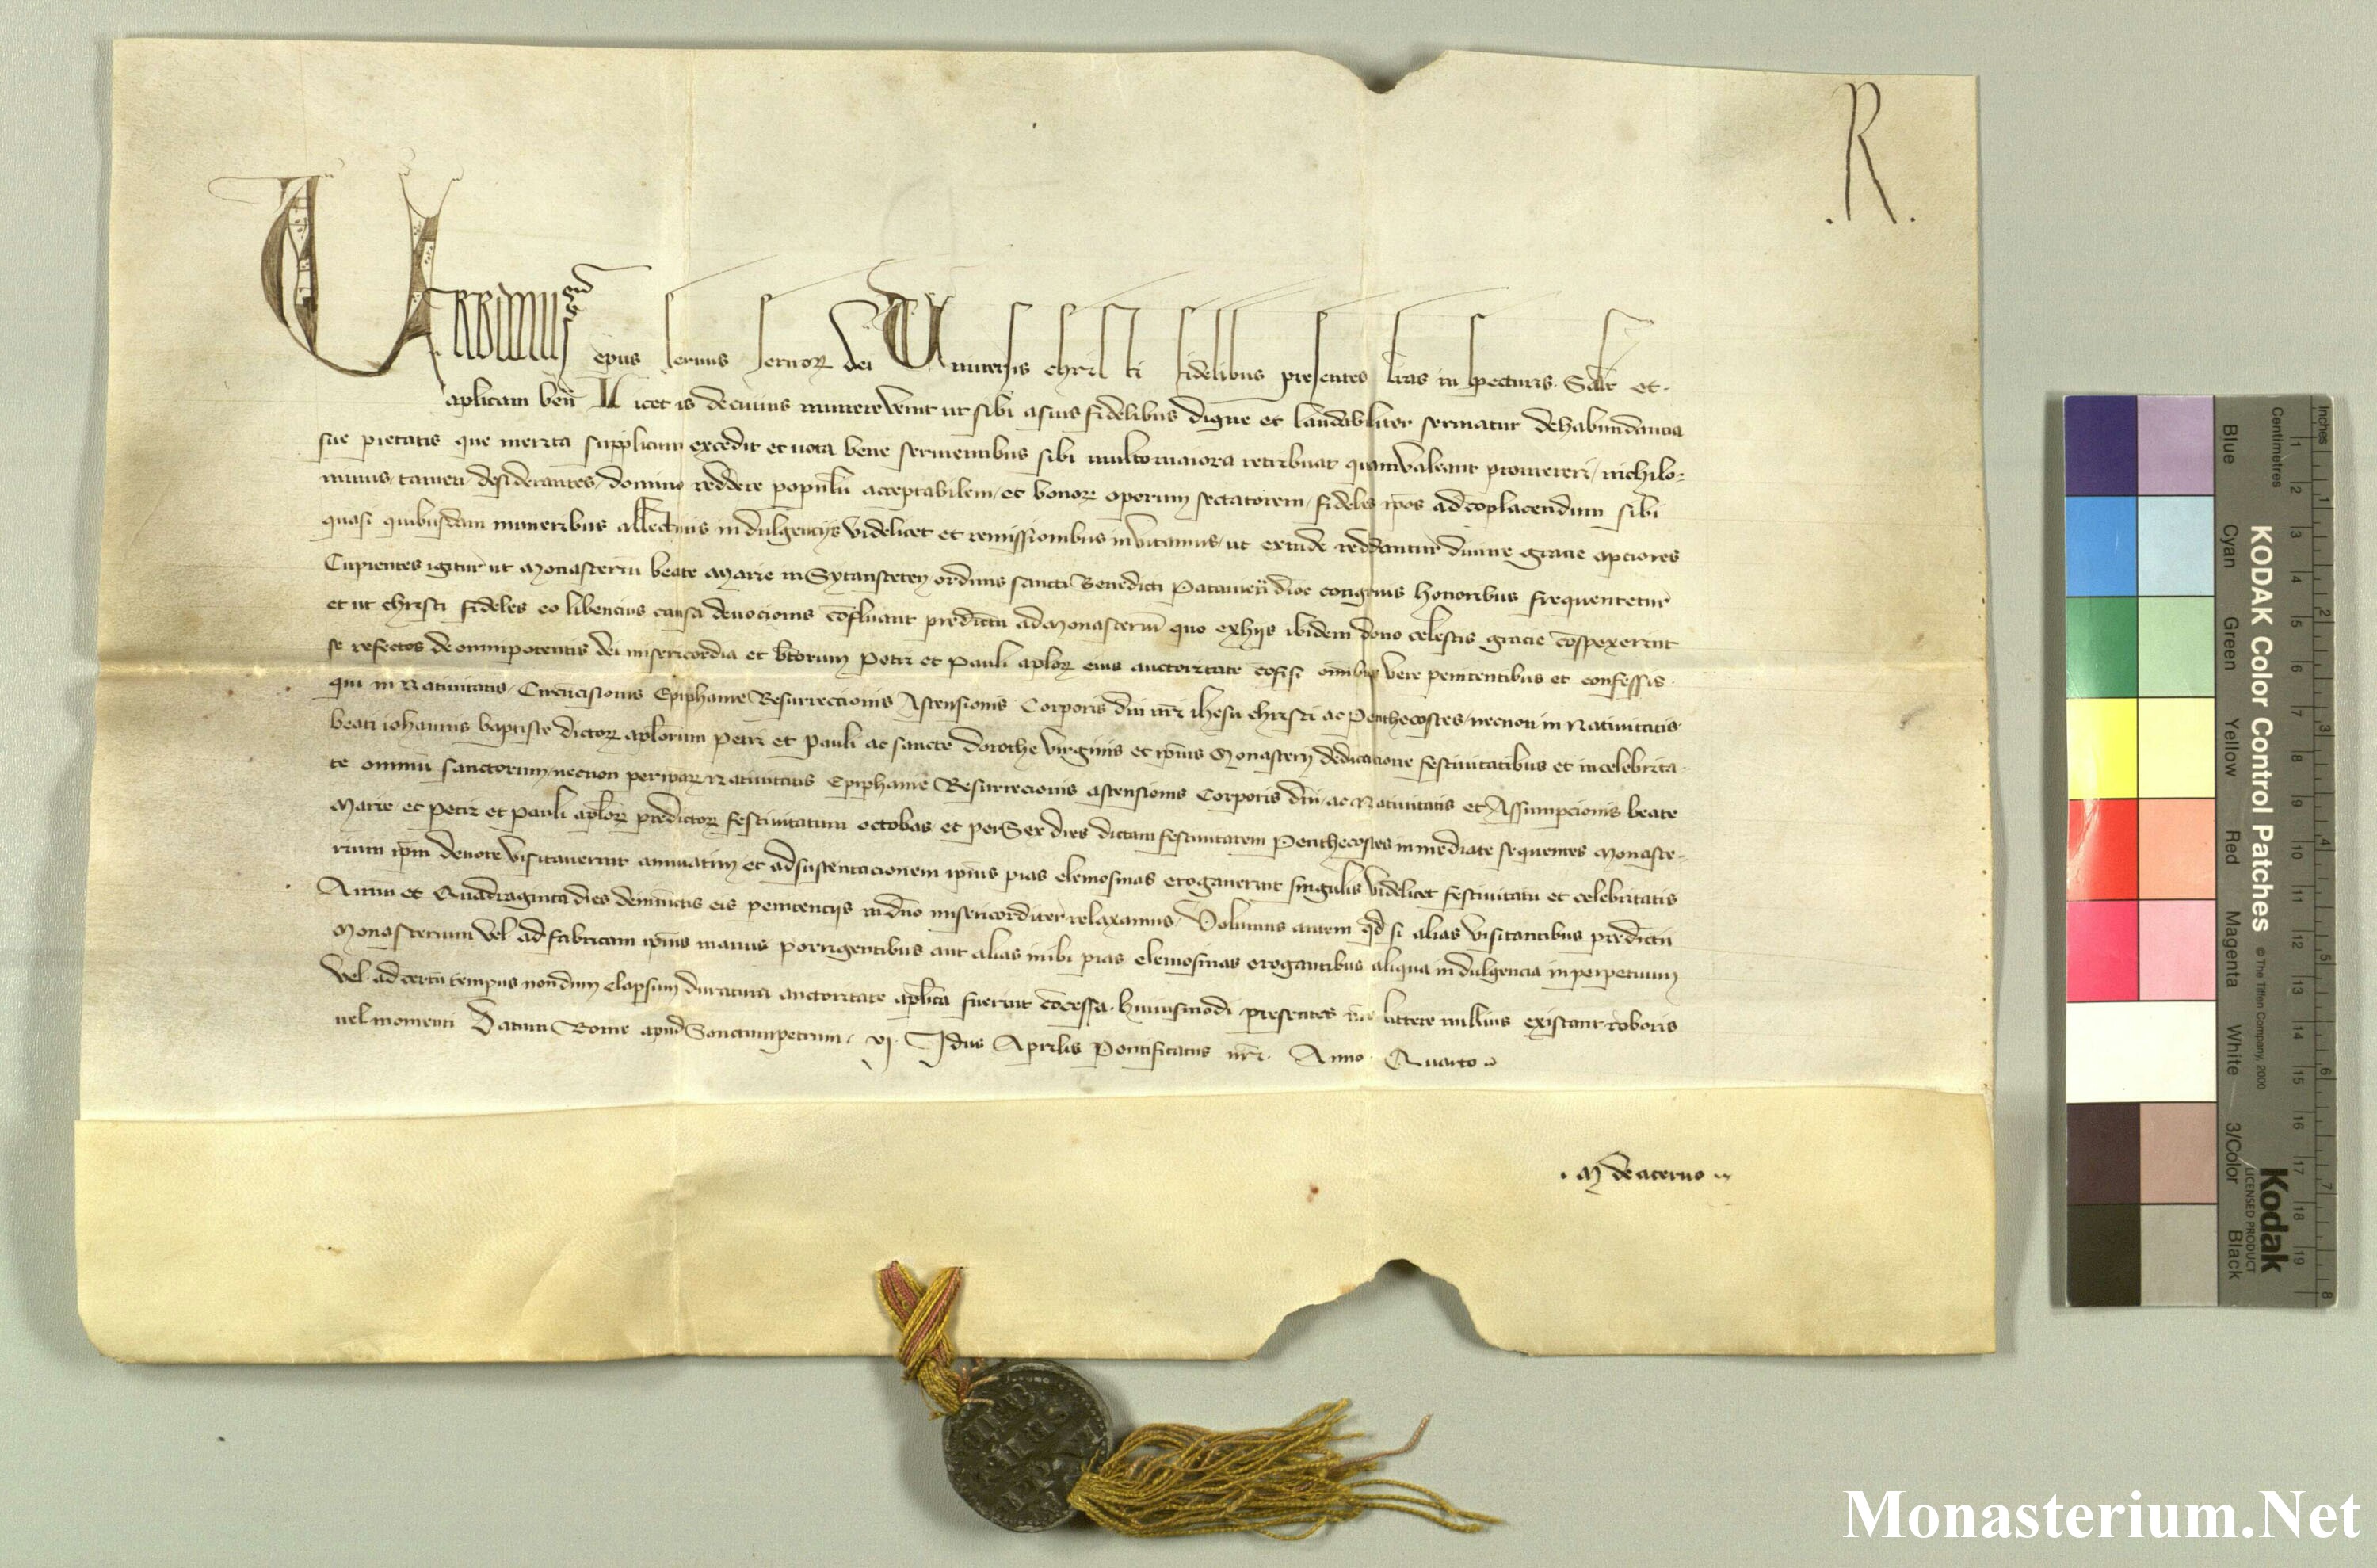 R.
Urbanus ep̄us seruus seruoꝝ dei Uniuersis christi fidelibus presentes lr̄as inspecturis Salt̄ et
ap̄licam ben̄ Licet is de cuius munere venit ut sibi a suis fidelibus digne et laudabiliter seruiatur de habundancia
sue pietatis que merita supplicum excedit et uota bene seruientibus sibi multo maiora retribuat quam valeant promereri nichilo-
minus tamen desiderantes domino reddere populū acceptabilem et bonoꝝ operum sectatorem fideles ip̄os ad cōplacendum sibi
quasi quibusdam muneribus allectiuis indulgencijs videlicet et remissionibus inuitamus ut exinde reddantur diuine gracie apciores
Cupientes igitur ut Monasteriū beate Marie in Sytansteten ordinis sancti Benedicti Patauien̄ dioc̄ congruis honoribus frequentetur
et ut christi fideles eo libencius causa deuocionis cōfluant predictū ad Monasteriū quo ex hijs ibidem dono celestis gracie cōspexerint
se refectos de omnipotentis dei misericordia et b̄torum Petri et Pauli ap̄loꝝ eius auctoritate cōfisi om̄ibus vere penitentibus et confessis
qui in Natiuitatis Circūcisionis Epiphanie Resurreccionis Ascensionis Corporis dn̄i nr̄i ihesu christi ac Penthecostes necnon in Natiuitatis
beati iohannis baptiste dictoꝝ ap̄lorum Petri et Pauli ac sancte dorothe virginis et ip̄ius Monasterij dedicacione festiuitatibus et in celebrita-
te omniū sanctorum necnon per ip̄aꝝ Natiuitatis Epiphanie Resurreccionis ascensionis Corporis dn̄i ac Natiuitatis et Assumpcionis beate
Marie et Petri et Pauli ap̄loꝝ predictoꝝ festiuitatum octobas et per Sex dies dictam festiuitatem Penthecostes inmediate sequentes Monaste-
rium ip̄m deuote visitauerint annuatim et ad sustentacionem ip̄ius pias elemosinas erogauerint singulis videlicet festiuitatū et celebritatis
Annū et Quadraginta dies de iniūctis eis penitencijs in dn̄o misericorditer relaxamus Volumus autem qd̄ si alias visitantibus predictū
Monasterium vel ad fabricam ip̄ius manus porrigentibus aut alias inibi pias elemosinas erogantibus aliqua indulgencia inperpetuum
vel ad certū tempus nondum elapsum duratura auctoritate ap̄lica fuerint cōcessa huiusmodi presentes littere nullius existant roboris
uel momenti Datum Rome apud Sanctumpetrum vj Idus Aprilis Pontificatus nr̄i Anno Quarto
M de aceruo
Monasterium.Net
KODAK Color Control Patches
© The Tiffen Company, 2000
Kodak
LICENSED PRODUCT
Inches
Centimetres
Blue Cyan Green Yellow Red Magenta White 3/Color Black
1 2 3 4 5 6 7 8
1 2 3 4 5 6 7 8 9 10 11 12 13 14 15 16 17 18 19